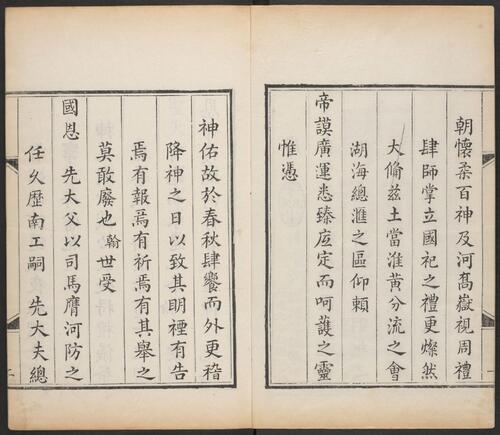 朝懷柔百神及河喬嶽視周禮
肆師掌立國祀之禮更燦然
大備茲土當淮黃分流之會
湖海總滙之區仰賴
帝謨廣運悉臻底定而呵護之靈
惟憑
神佑故於春秋肆饗而外更稽
降神之日以致其明禋有告
焉有報焉有祈焉有其舉之
莫敢廢也翰世受
國恩 先大父以司馬膺河防之
任久歷南工嗣 先大夫總